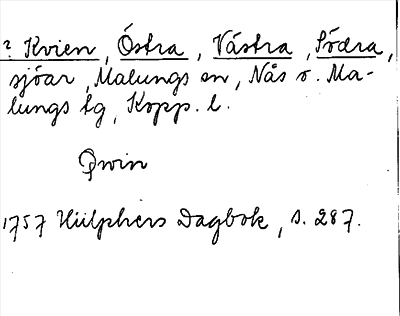 ? Kvien, Östra, Västra, Södra,
sjöar, Malungs sn, Nås o. Ma-
lungs tg, Kopp. l.
Qwin
1757 Hülphers Dagbok, s. 287.